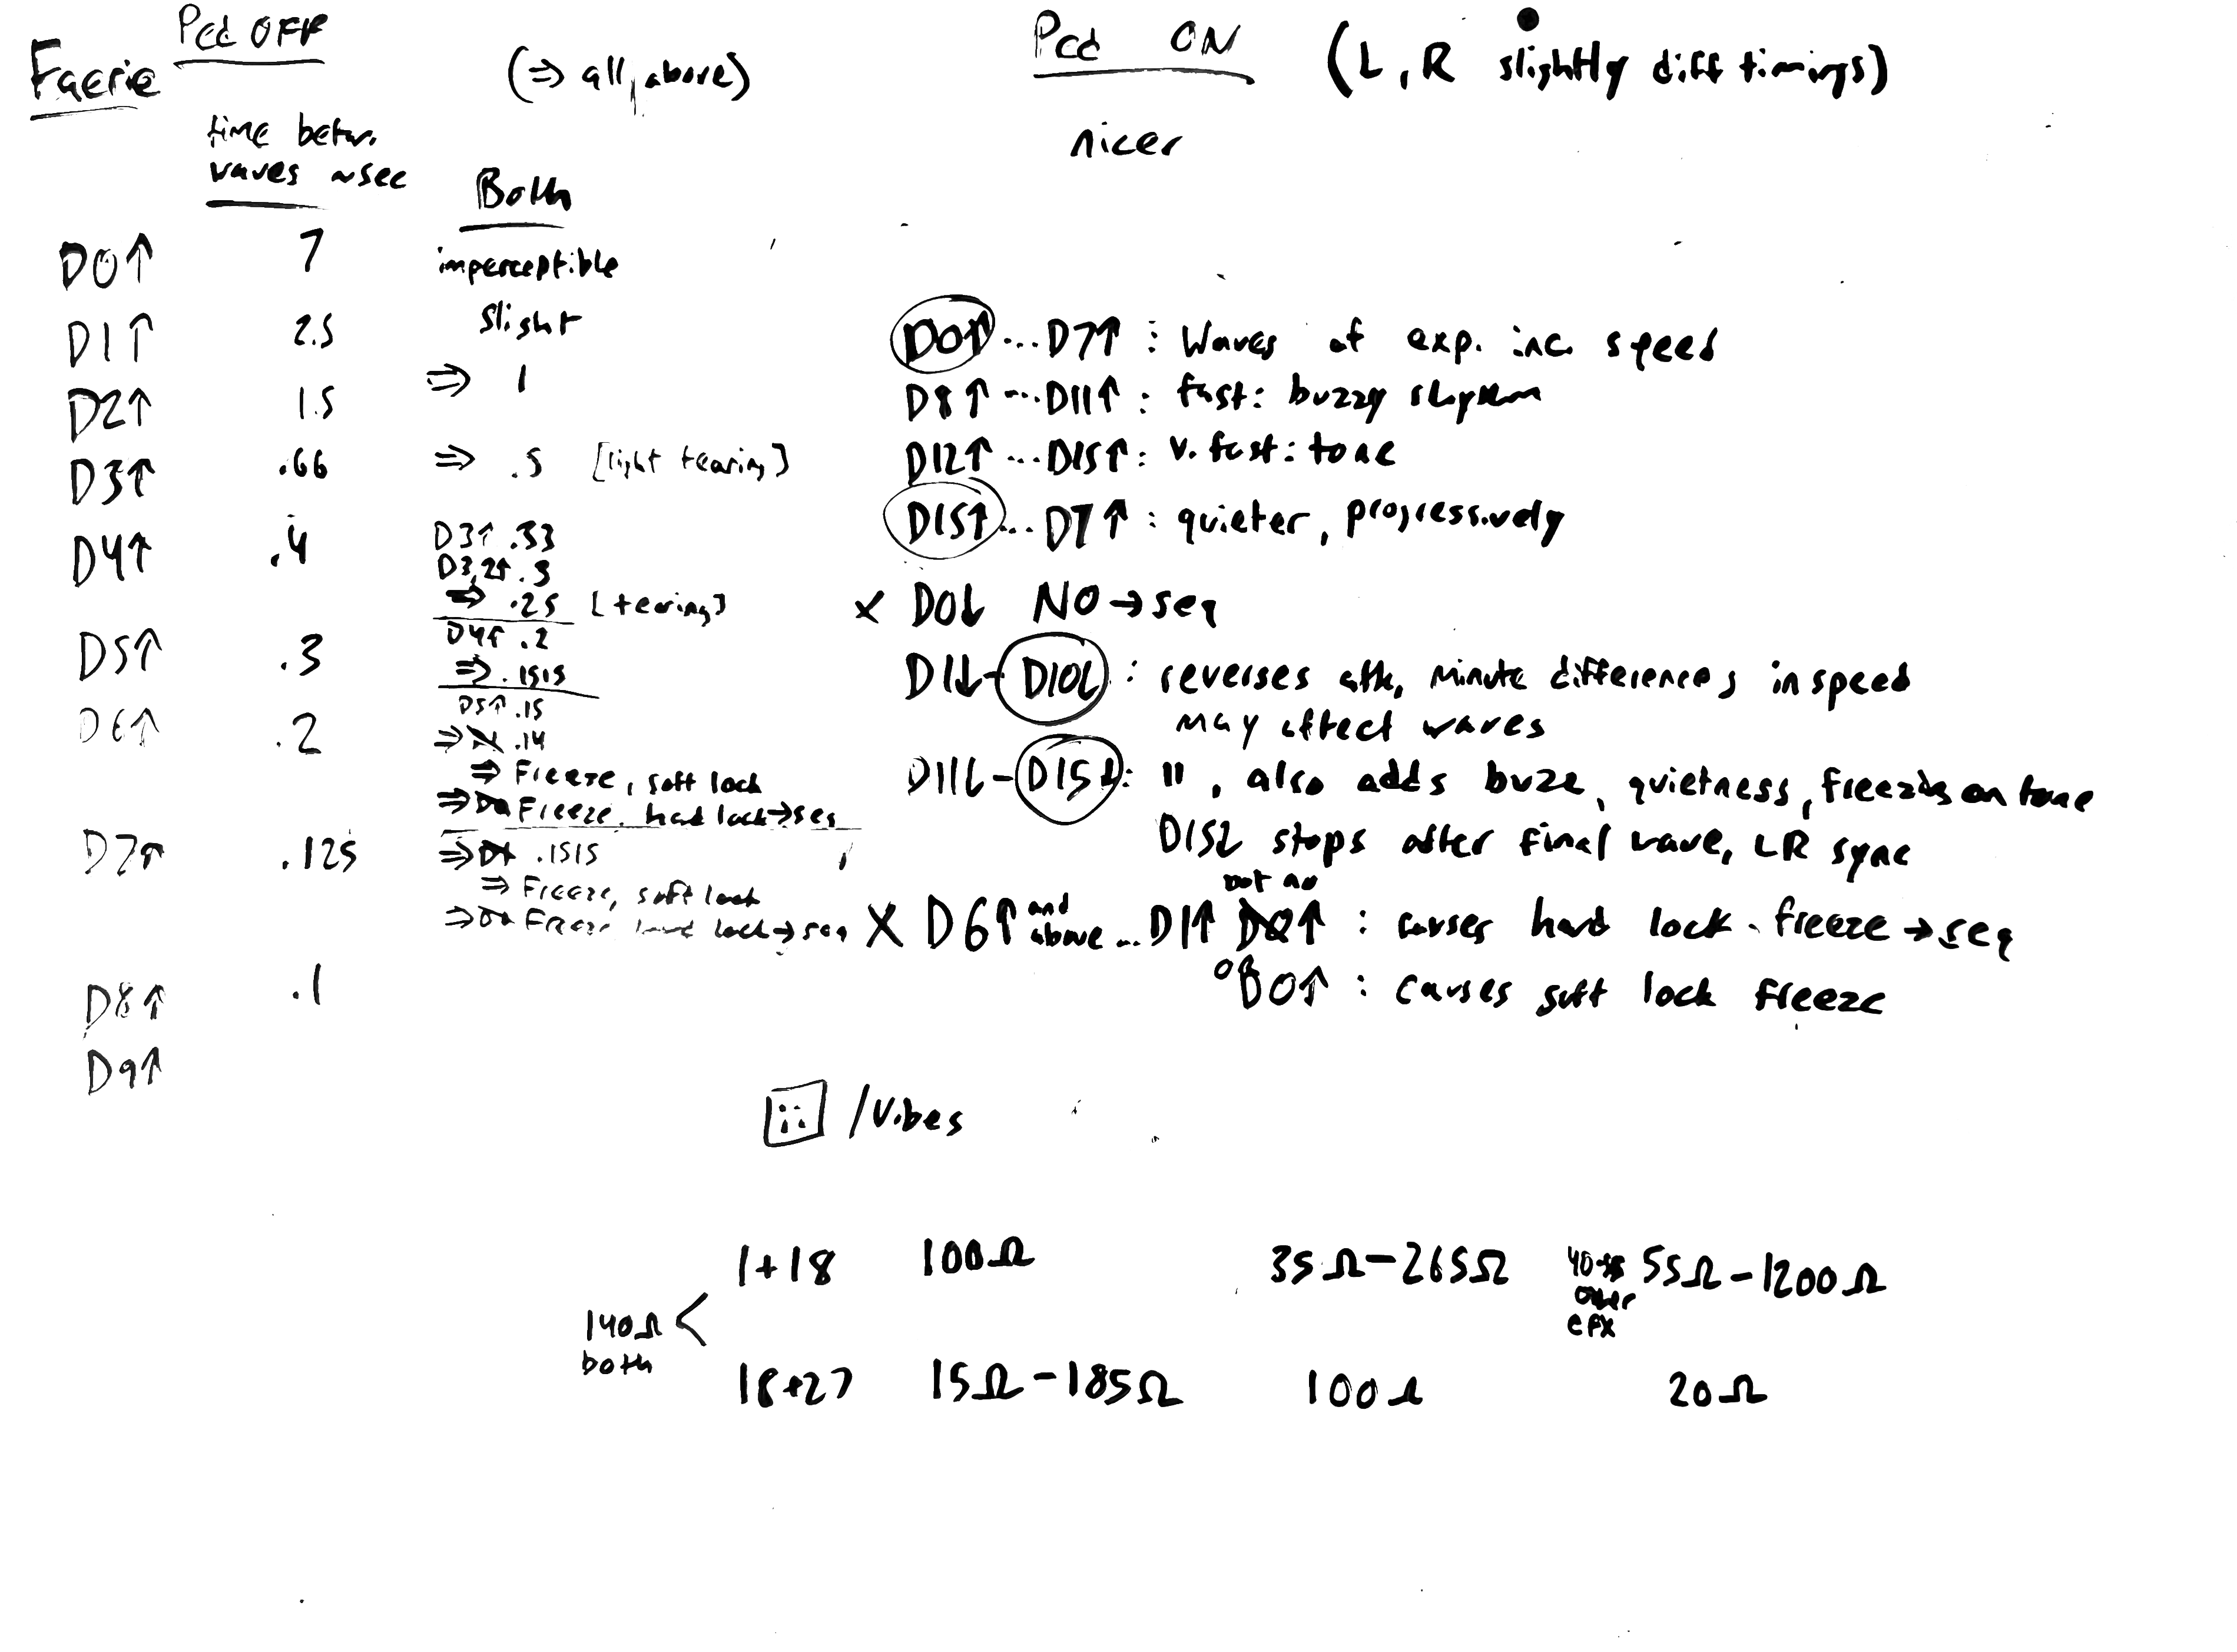 Faerie
Ped OFF
(⇒ all, above)
time betw.
waves ~sec
Both
D0↑ 7 imperceptible
D1↑ 2.5 slight
D2↑ 1.5 ⇒ 1
D3↑ .66 ⇒ .5 [light tearing]
D4↑ .4
D3↑ .33
D3,2↑ .3
⇒ .25 [tearing]
D4↑ .2
D5↑ .3
⇒ .1515
D5↑ .15
D6↑ .2
⇒ .14
⇒ Freeze, soft lock
⇒ Freeze, hard lock → seq
D7↑ .125
⇒ .1515
⇒ Freeze, soft lock
⇒ Freeze hard lock → seq
D8↑ .1
D9↑
Ped ON (L, R slightly diff timings)
nicer
D0↑ ... D7↑ : Waves of exp. inc. speed
D8↑ ... D11↑ : fast: buzzy
D12↑ ... D15↑ : v. fast: tone
D15↑ ... D7↑ : quieter, progressively
x D0↓ NO → seq
D1↓ - D10↓ : reverses atk, minute differences in speed
may affect waves
D11↓ - D15↓ : 11, also adds buzz, quietness, freezing on tone
D15↓ stops after final wave, LR sync
X D6↑ and above ... D1↑ but no D0↑ : causes hard lock freeze → seq
or D0↑ : causes soft lock freeze
/Vibes
1+18 100Ω 35Ω-265Ω 55Ω-1200Ω
other
efx
140Ω <
both
18+27 15Ω-185Ω 100Ω 20Ω